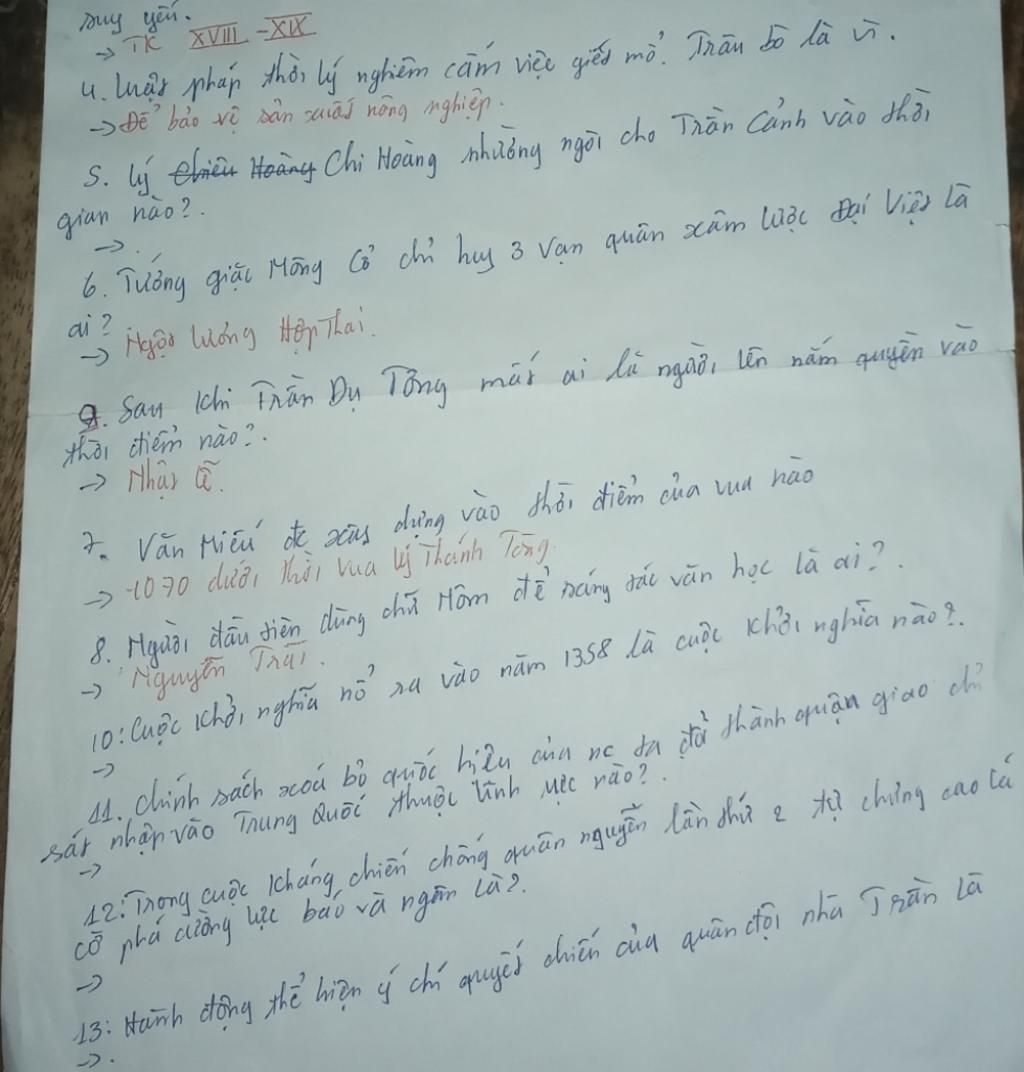 suy yếu.
→ TK XVIII - XIX
4. luật pháp thời lý nghiêm cấm việc giết mổ. Trâu bò là vì.
→ Để bảo vệ sản xuất nông nghiệp.
5. lý Chiêu Hoàng Chi Hoàng nhường ngôi cho Trần Cảnh vào thời
gian nào?.
→.
6. Tướng giặc Mông Cổ chỉ huy 3 vạn quân xâm lược Đại Việt là
ai?
→ Ngột lương Hợp Thai.
9. Sau khi Trần Dụ Tông mất ai là người lên nắm quyền vào
thời điểm nào?.
→ Nhật Lễ.
7. Văn Miếu đc xây dựng vào thời điểm của vua nào
→ 1070 dưới thời vua lý Thánh Tông.
8. Người đầu tiên dùng chữ Nôm để sáng tác văn học là ai?.
→ Nguyễn Trãi.
10: Cuộc khởi nghĩa nổ ra vào năm 1358 là cuộc khởi nghĩa nào?.
→
11. chính sách xoá bỏ quốc hiệu của nc ta đả thành quận giao chỉ
sát nhập vào Trung Quốc thuộc lĩnh vực nào?.
→
12: Trong cuộc kháng chiến chống quân nguyễn lần thứ 2 tự chứng cao lá
cờ phá cường lực báo và ngân là?.
→
13: Hành động thể hiện ý chí quyết chiến của quân đội nhà Trần là
→.